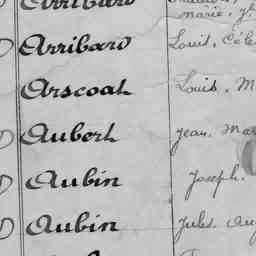 Marie, 
Arribard Louis,
Arscoat Louis, M
Aubert Jean, Mar
Aubin Joseph.
Aubin Jules,